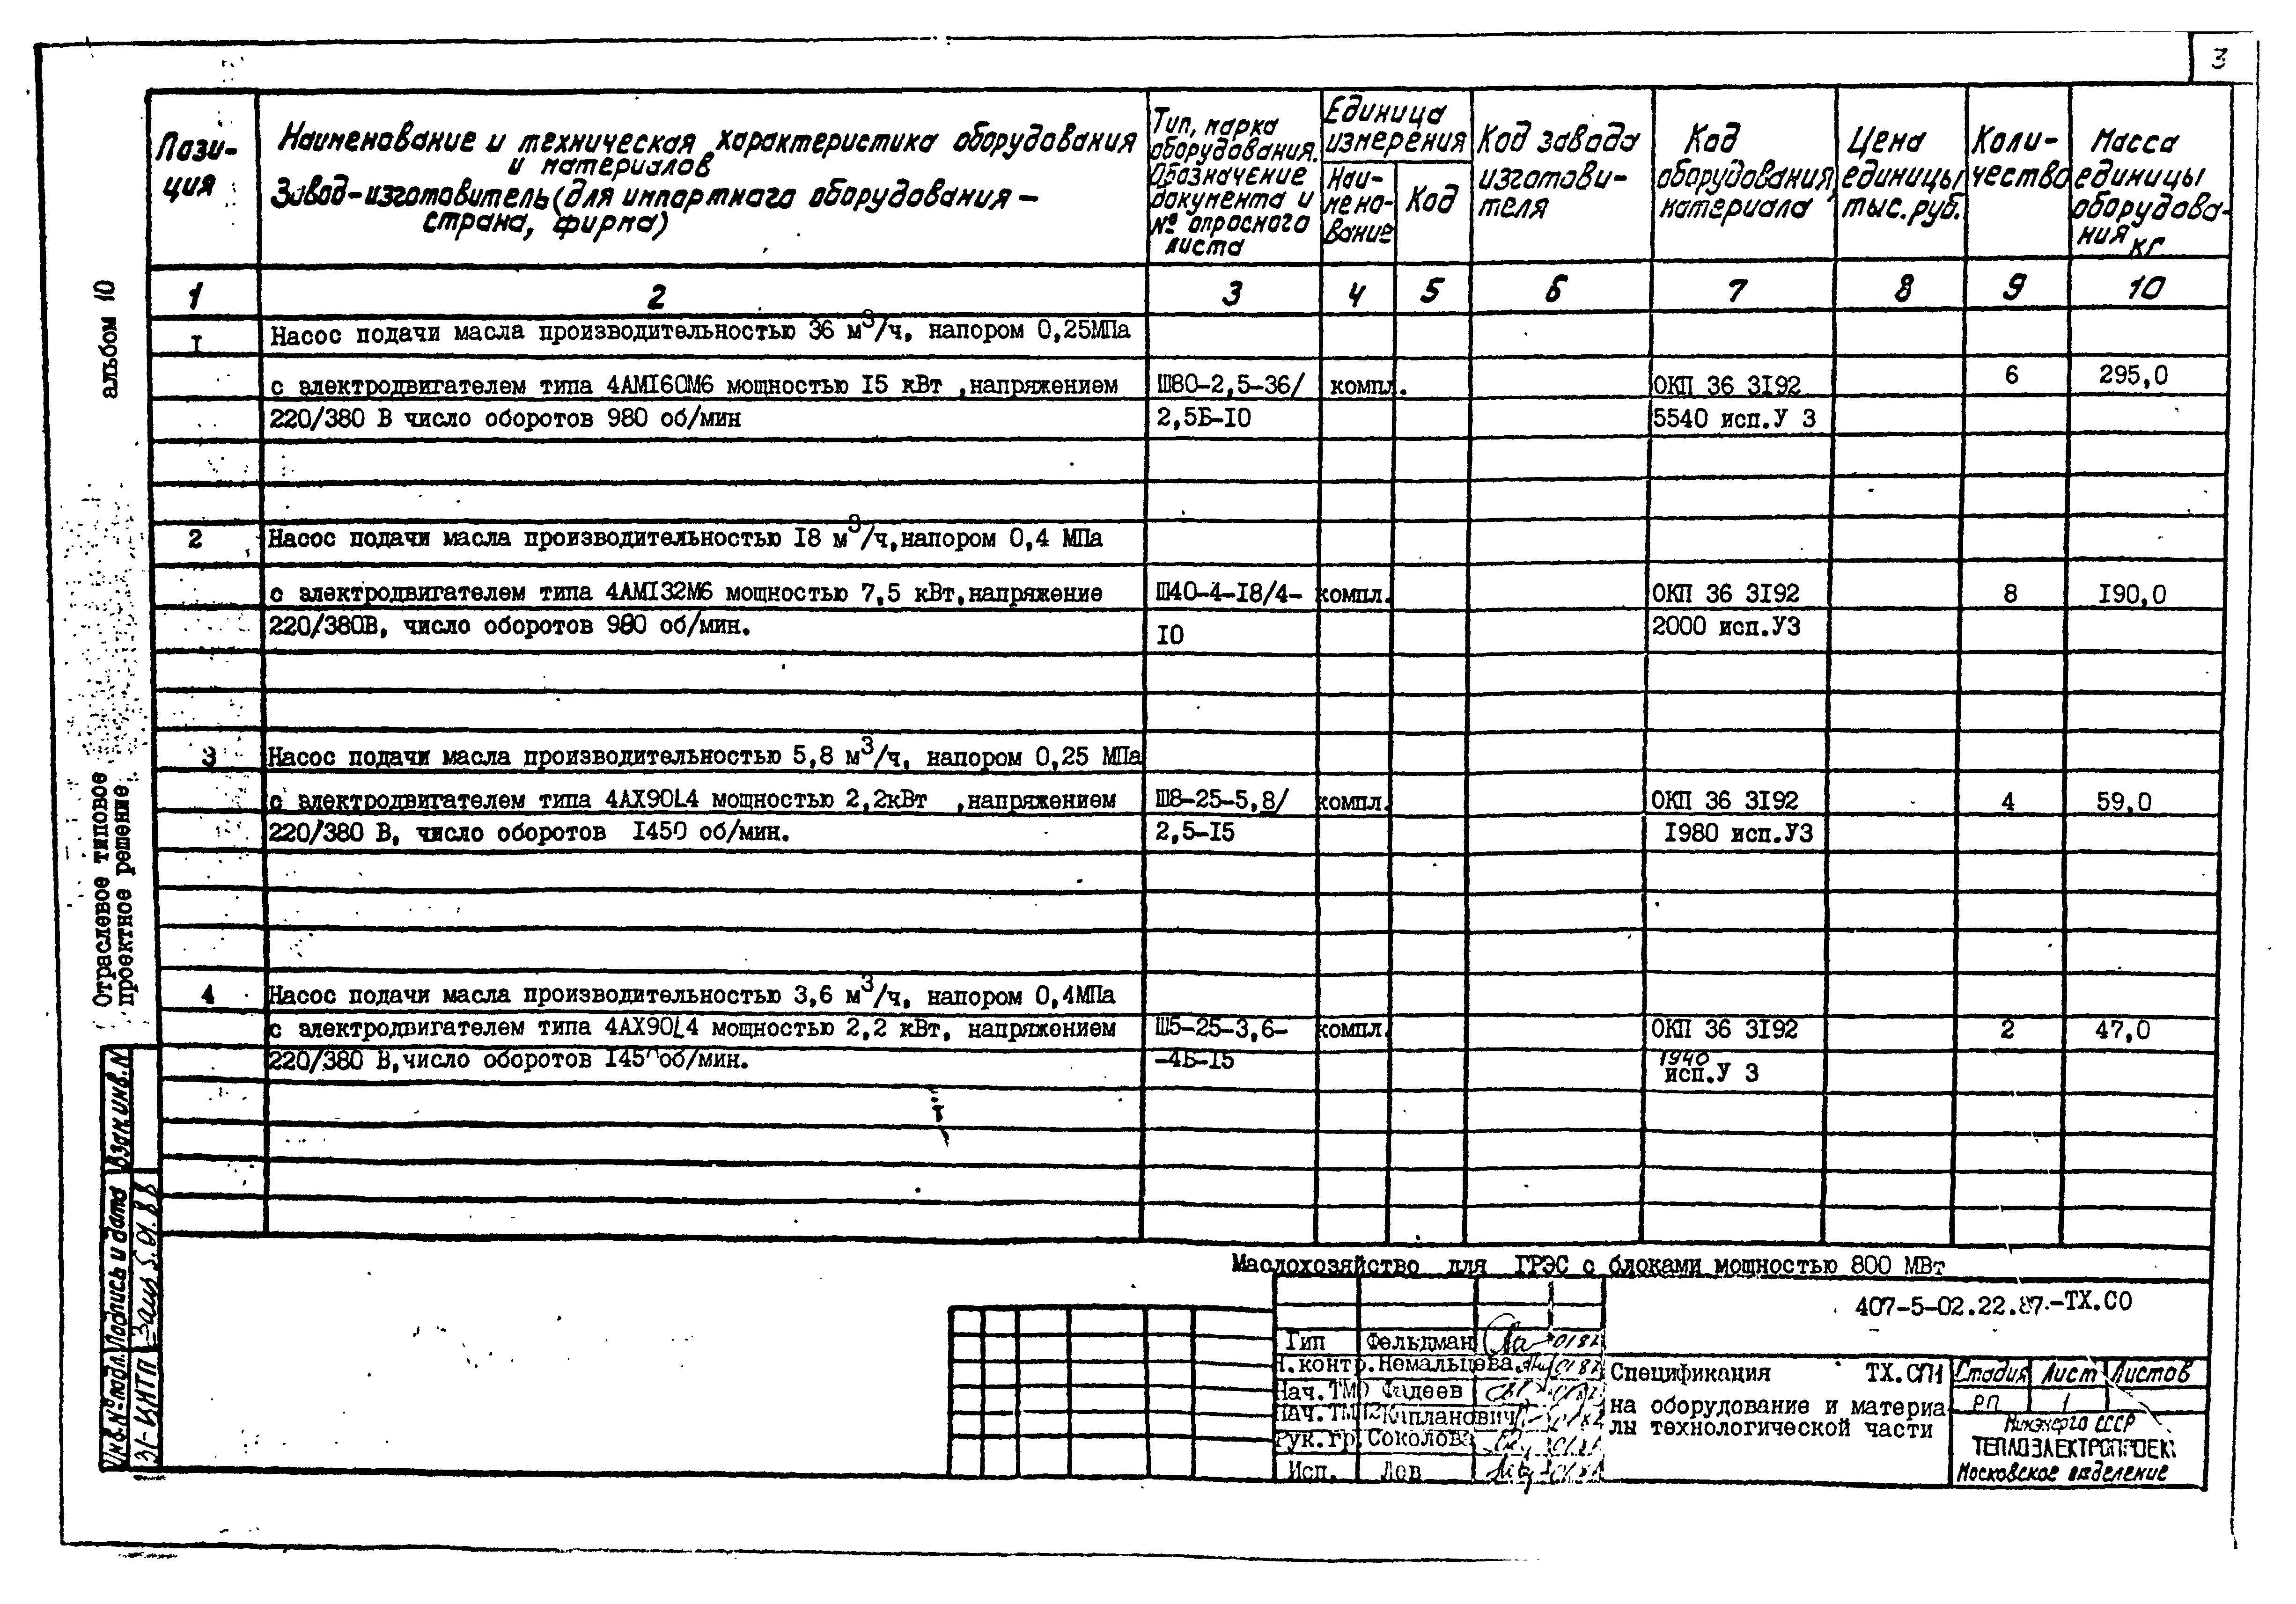 3
Пози-
ция
Наименование и техническая характеристика оборудования
и материалов
Завод-изготовитель (для импортного оборудования –
страна, фирма)
Тип, марка
оборудования.
Обозначение
документа и
№ опросного
листа
Единица
измерения
Наи-
мено-
вание
Код
Код завода
изготови-
теля
Код
оборудования,
материала
Цена
единицы
тыс.руб.
Коли-
чество
Масса
единицы
оборудова-
ния кг
1 2 3 4 5 6 7 8 9 10
I Насос подачи масла производительностью 36 м³/ч, напором 0,25МПа
с электродвигателем типа 4АМI60М6 мощностью I5 кВт ,напряжением Ш80-2,5-36/ компл. ОКП 36 3I92 6 295,0
220/380 В число оборотов 980 об/мин 2,5Б-I0 5540 исп.У 3
2 Насос подачи масла производительностью I8 м³/ч,напором 0,4 МПа
с электродвигателем типа 4АМI32М6 мощностью 7,5 кВт,напряжение Ш40-4-I8/4- компл. ОКП 36 3I92 8 I90,0
220/380В, число оборотов 980 об/мин. I0 2000 исп.У3
3 Насос подачи масла производительностью 5,8 м³/ч, напором 0,25 МПа
с электродвигателем типа 4АХ90L4 мощностью 2,2кВт ,напряжением Ш8-25-5,8/ компл. ОКП 36 3I92 4 59,0
220/380 В, число оборотов I450 об/мин. 2,5-I5 I980 исп.У3
4 Насос подачи масла производительностью 3,6 м³/ч, напором 0,4МПа
с электродвигателем типа 4АХ90L4 мощностью 2,2 кВт, напряжением Ш5-25-3,6- компл. ОКП 36 3I92 2 47,0
220/380 В,число оборотов I450 об/мин. -4Б-I5 1940
исп.У 3
альбом 10
Отраслевое типовое
проектное решение
Взам.инв.N
Подпись и дата
5.01.88
Инв.№ подл.
31-ЦИТП
Маслохозяйство для ГРЭС с блоками мощностью 800 МВт
407-5-02.22.87.-ТХ.СО
Гип Фельдман
Н.контр. Немальцева
Нач.ТМО Фадеев
Нач.ТМ12 Капланович
Рук.гр. Соколова
Исп. Лев
Спецификация ТХ.СП1
на оборудование и материа
лы технологической части
Стадия Лист Листов
РП 1
Минэнерго СССР
ТЕПЛОЭЛЕКТРОПРОЕКТ
Московское отделение